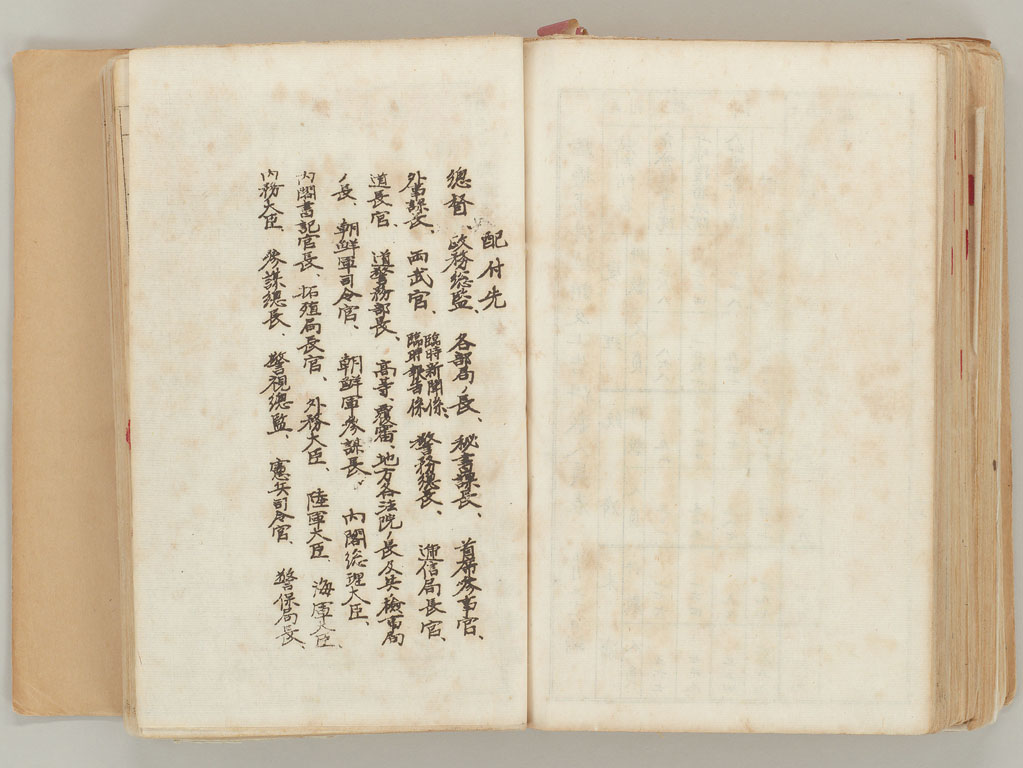 配付先
總督、政務総監、各部局ノ長、秘書課長、首席参事官、
外事課長、両武官、臨時新聞係、臨時報告係、警務總長、逓信局長官、
道長官、道警務部長、高等、覆審、地方各法院ノ長及其検事局
ノ長、朝鮮軍司令官、朝鮮軍参謀長、内閣総理大臣、
内閣書記官長、拓殖局長官、外務大臣、陸軍大臣、海軍大臣、
内務大臣、参謀總長、警視總監、憲兵司令官、警保局長、